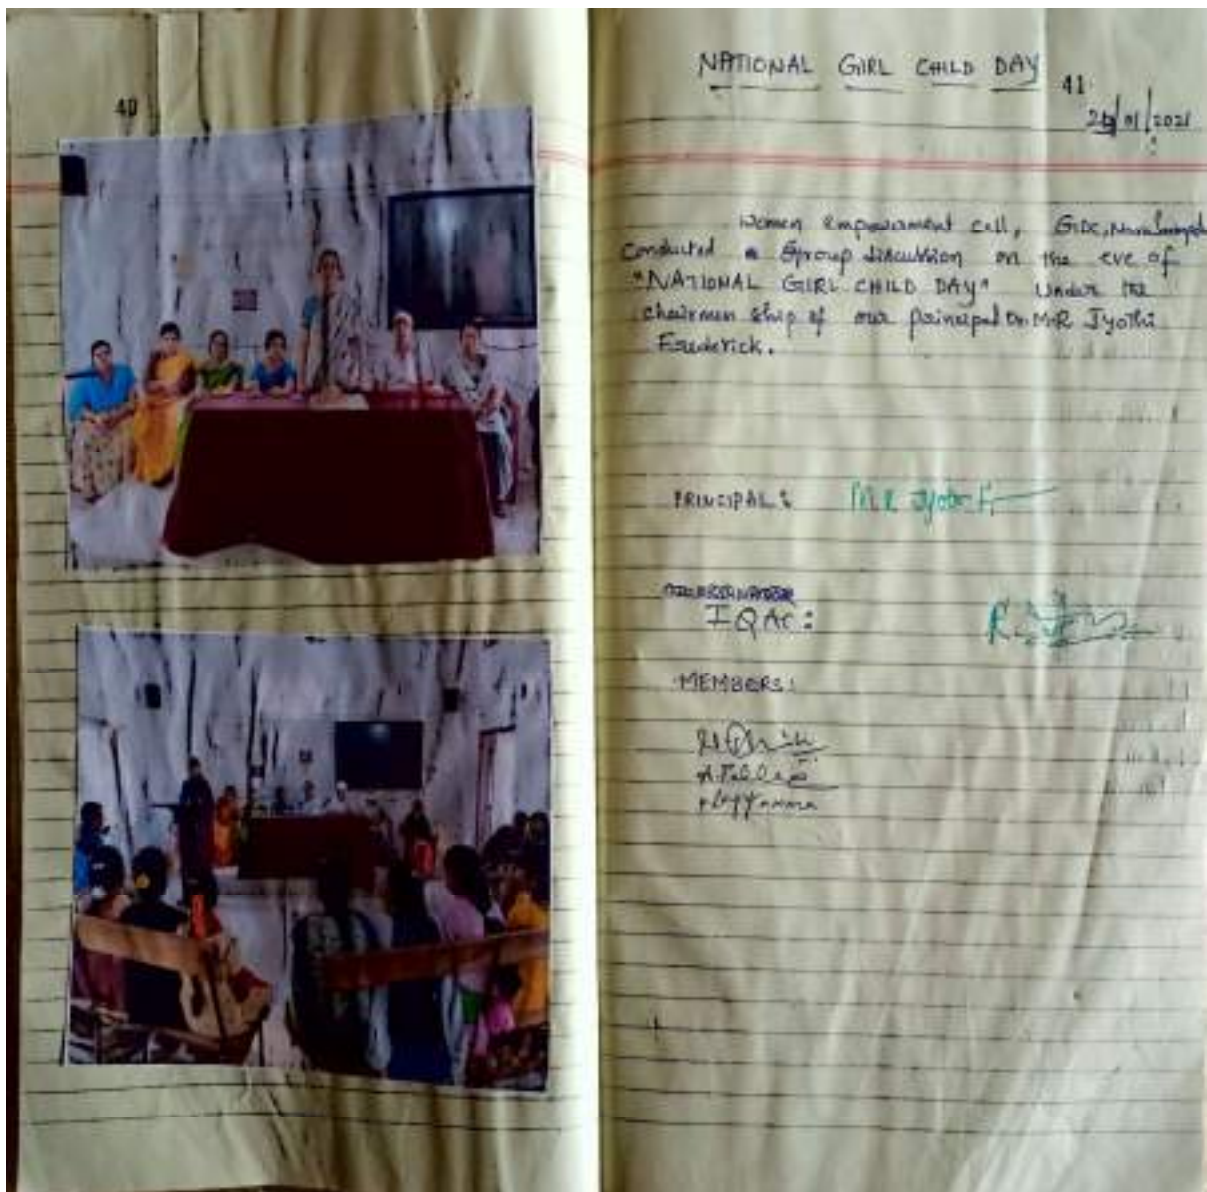 40
NATIONAL GIRL CHILD DAY
41
/01/2021
Women empowerment cell, GDC,
Conducted a Group discussion on the eve of
"NATIONAL GIRL CHILD DAY" Under the
chairmen ship of our principal Dr. M.R Jyothi
Frederick.
PRINCIPAL:
IQAC:
MEMBERS: